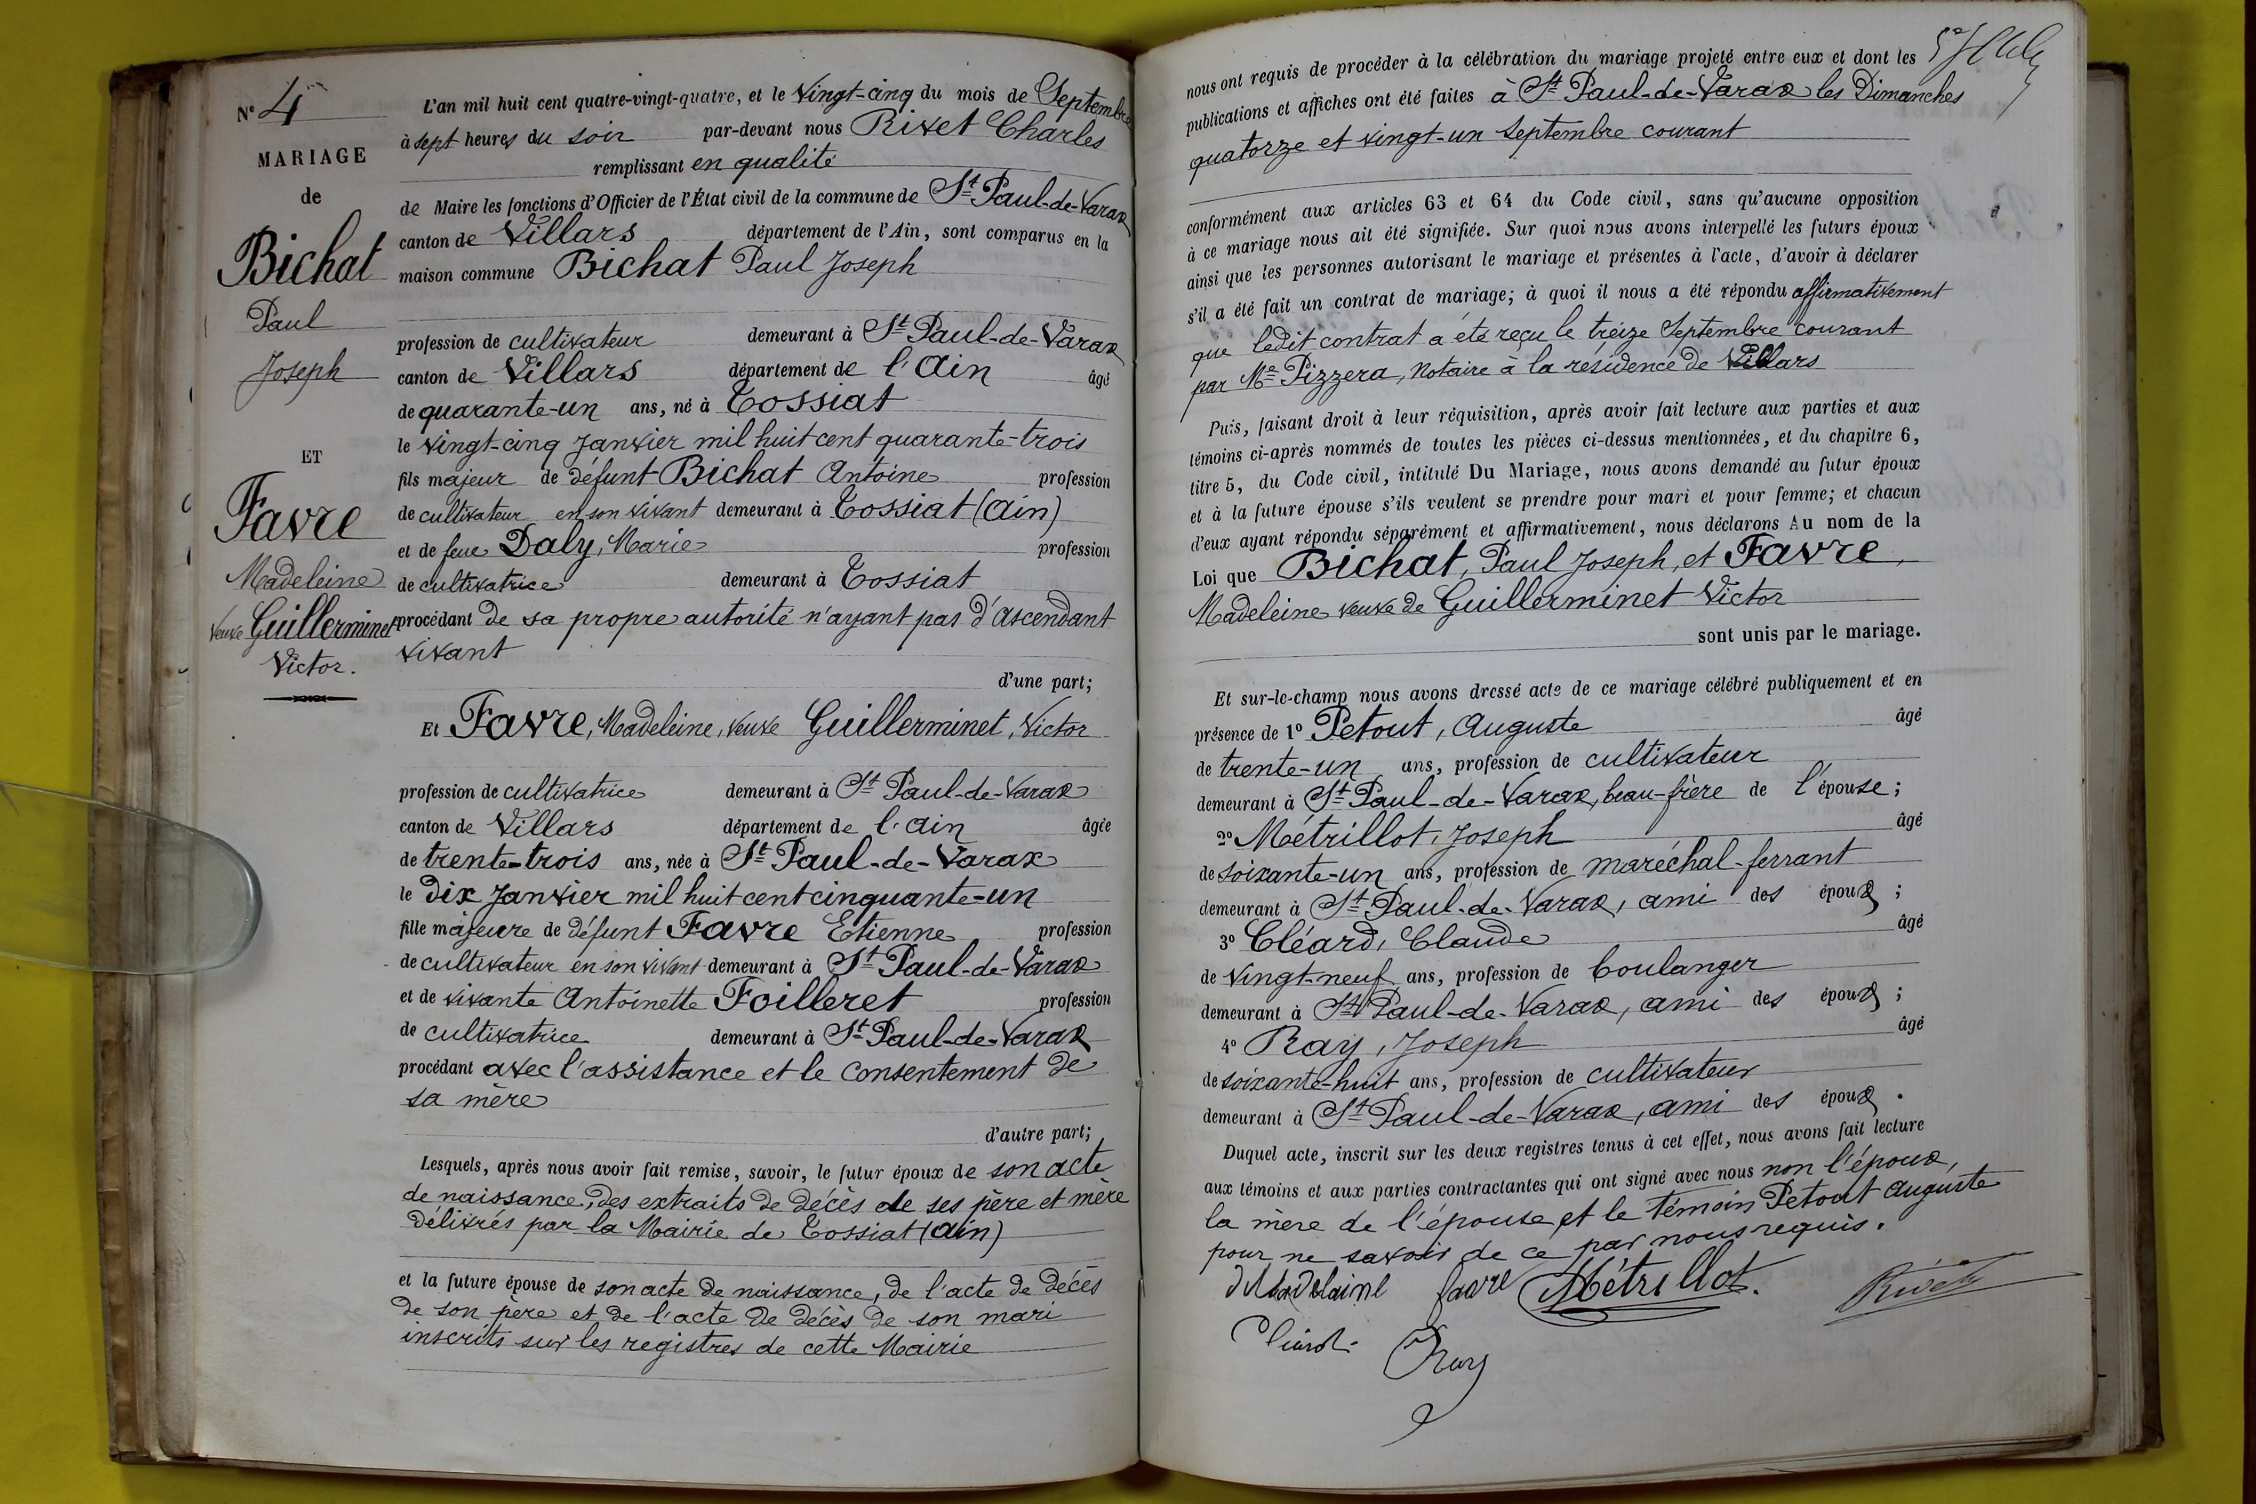 N° 4
MARIAGE
de
Bichat
Paul
Joseph
ET
Favre
Madeleine
veuve Guillerminet
Victor.
L'an mil huit cent quatre-vingt-quatre, et le vingt-cinq du mois de Septembre
à sept heures du soir par-devant nous Rivet Charles
remplissant en qualité
de Maire les fonctions d'Officier de l'État civil de la commune de St Paul-de-Varax
canton de Villars département de l'Ain, sont comparus en la
maison commune Bichat Paul Joseph
profession de cultivateur demeurant à St Paul-de-Varax
canton de Villars département de l'Ain âgé
de quarante-un ans, né à Tossiat
le vingt-cinq Janvier mil huit cent quarante-trois
fils majeur de défunt Bichat Antoine profession
de cultivateur en son vivant demeurant à Tossiat (Ain)
et de feue Daly, Marie profession
de cultivatrice demeurant à Tossiat
procédant de sa propre autorité n'ayant pas d'ascendant
vivant
d'une part;
Et Favre, Madeleine, veuve Guillerminet, Victor
profession de cultivatrice demeurant à St Paul-de-Varax
canton de Villars département de l'Ain âgée
de trente-trois ans, née à St Paul-de-Varax
le dix Janvier mil huit cent cinquante-un
fille majeure de défunt Favre Etienne profession
de cultivateur en son vivant demeurant à St Paul-de-Varax
et de vivante Antoinette Foilleret profession
de cultivatrice demeurant à St Paul-de-Varax
procédant avec l'assistance et le consentement de
sa mère
d'autre part;
Lesquels, après nous avoir fait remise, savoir, le futur époux de son acte
de naissance, des extraits de décès de ses père et mère
délivrés par la Mairie de Tossiat (Ain)
et la future épouse de son acte de naissance, de l'acte de décès
de son père et de l'acte de décès de son mari
inscrits sur les registres de cette Mairie
nous ont requis de procéder à la célébration du mariage projeté entre eux et dont les
publications et affiches ont été faites à St Paul-de-Varax les Dimanches
quatorze et vingt-un Septembre courant
conformément aux articles 63 et 64 du Code civil, sans qu'aucune opposition
à ce mariage nous ait été signifiée. Sur quoi nous avons interpellé les futurs époux
ainsi que les personnes autorisant le mariage et présentes à l'acte, d'avoir à déclarer
s'il a été fait un contrat de mariage; à quoi il nous a été répondu affirmativement
que ledit contrat a été reçu le treize Septembre courant
par Me Pizzera, Notaire à la résidence de Villars
Puis, faisant droit à leur réquisition, après avoir fait lecture aux parties et aux
témoins ci-après nommés de toutes les pièces ci-dessus mentionnées, et du chapitre 6,
titre 5, du Code civil, intitulé Du Mariage, nous avons demandé au futur époux
et à la future épouse s'ils veulent se prendre pour mari et pour femme; et chacun
d'eux ayant répondu séparément et affirmativement, nous déclarons Au nom de la
Loi que Bichat, Paul Joseph, et Favre,
Madeleine veuve de Guillerminet Victor
sont unis par le mariage.
Et sur-le-champ nous avons dressé acte de ce mariage célébré publiquement et en
présence de 1° Petout, Auguste âgé
de trente-un ans, profession de cultivateur
demeurant à St Paul-de-Varax, beau-frère de l'épouse;
2° Métrillot, Joseph âgé
de soixante-un ans, profession de maréchal-ferrant
demeurant à St Paul-de-Varax, ami des époux;
3° Cléard, Claude âgé
de vingt-neuf ans, profession de boulanger
demeurant à St Paul-de-Varax, ami des époux;
4° Ray, Joseph âgé
de soixante-huit ans, profession de cultivateur
demeurant à St Paul-de-Varax, ami des époux.
Duquel acte, inscrit sur les deux registres tenus à cet effet, nous avons fait lecture
aux témoins et aux parties contractantes qui ont signé avec nous non l'époux,
la mère de l'épouse et le témoin Petout Auguste
pour ne savoir de ce par nous requis.
Madelaine favre Métrillot. Rivet
Ray